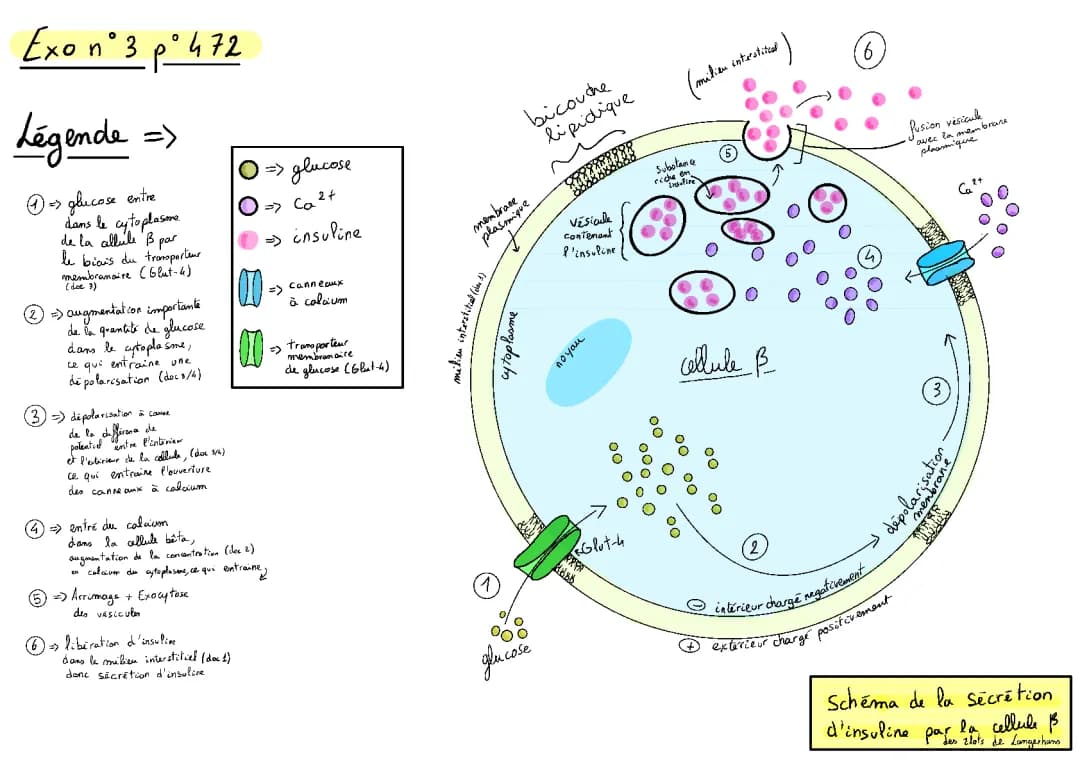 Exo n°3 p°472
Légende =>
① => glucose entre
dans le cytoplasme
de la cellule β par
le biais du transporteur
membranaire (Glut-4)
(doc 3)
② => augmentation importante
de la quantité de glucose
dans le cytoplasme,
ce qui entraine une
dépolarisation (doc 3/4)
③ => dépolarisation à cause
de la différence de
potentiel entre l'intérieur
et l'extérieur de la cellule, (doc 3/4)
ce qui entraine l'ouverture
des canneaux à calcium
④ => entré du calcium
dans la cellule bêta,
augmentation de la concentration (doc 2)
en calcium du cytoplasme, ce qui entraine,
⑤ => Arrimage + Exocytose
des vésicules
⑥ => libération d'insuline
dans le milieu interstitiel (doc 1)
donc sécrétion d'insuline
=> glucose
=> Ca2+
=> insuline
=> canneaux
à calcium
=> transporteur
membranaire
de glucose (Glut-4)
bicouche
lipidique
(milieu interstitiel)
⑥
fusion vésicule
avec la membrane
plasmique
⑤
Substance
riche en
insuline
Ca2+
membrane
plasmique
vésicule
contenant
l'insuline
④
milieu interstitiel
cytoplasme
noyau
cellule β
③
dépolarisation
membrane
Glut-4
②
①
glucose
⊖ intérieur chargé négativement
⊕ extérieur chargé positivement
Schéma de la sécrétion
d'insuline par la cellule β
des îlots de Langerhans